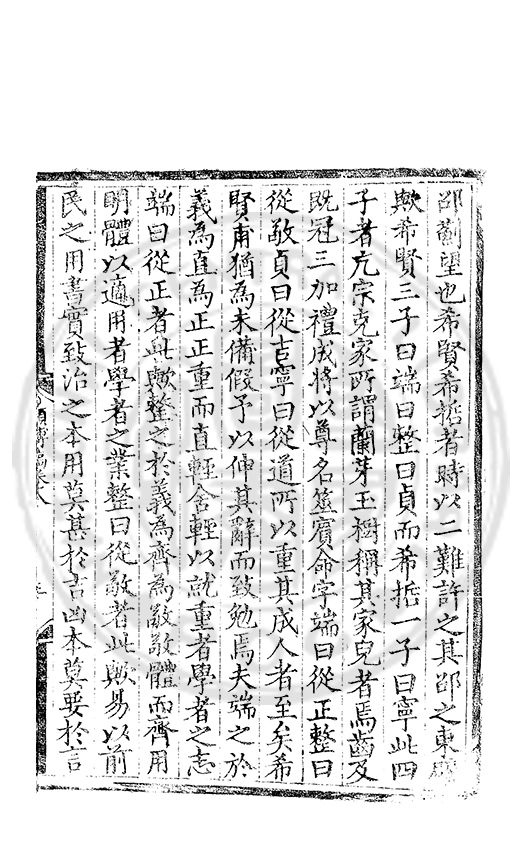 邵蘭望也希賢希哲者時以二難許之其邵之東
歟希賢三子曰端曰整曰貞而希哲一子曰寧此四
子者亢宗克家所謂蘭芽玉樹稱其家兒者焉齒及
既冠三加禮成將以尊名筮賓命字端曰從正整曰
從敬貞曰從吉寧曰從道所以重其成人者至矣希
賢甫猶為未備假予以伸其辭而致勉焉夫端之於
義為直為正正重而直輕舍輕以就重者學者之志
端曰從正者此歟整之於義為齊為敬敬體而齊用
明體以適用者學者之業整曰從敬者此歟易以前
民之用書實致治之本用莫甚於吉凶本莫要於言